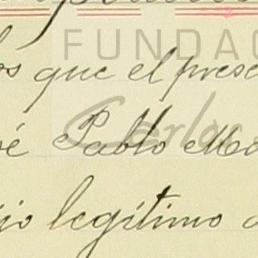 FUNDAC
os que el prese
Carlos
é Pablo Me
ijo legitimo d